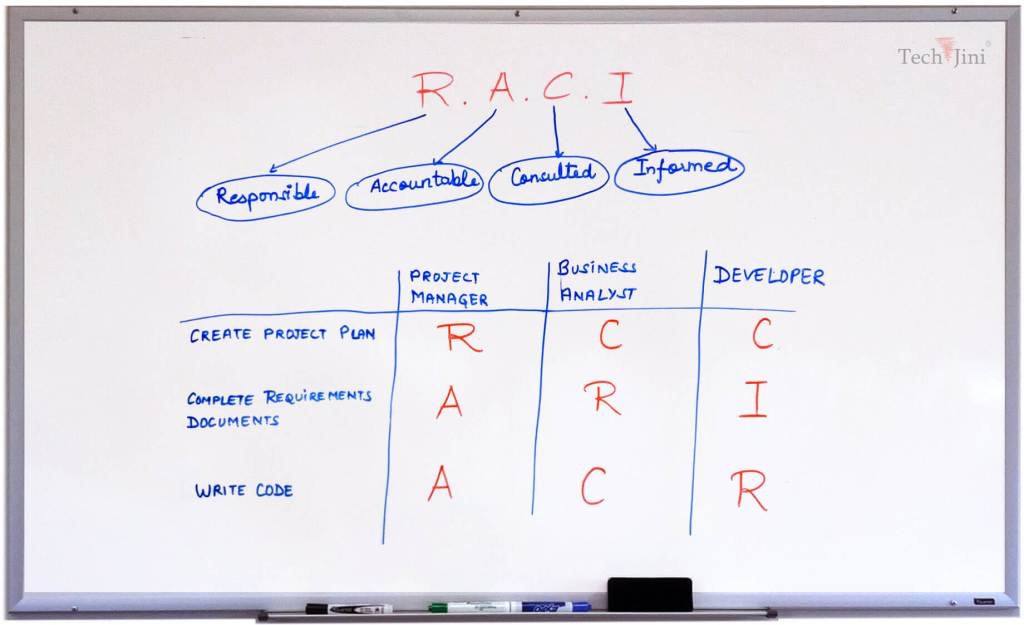 Tech Jini
R. A. C. I
Responsible Accountable Consulted Informed
PROJECT MANAGER
BUSINESS ANALYST
DEVELOPER
CREATE PROJECT PLAN R C C
COMPLETE REQUIREMENTS
DOCUMENTS A R I
WRITE CODE A C R